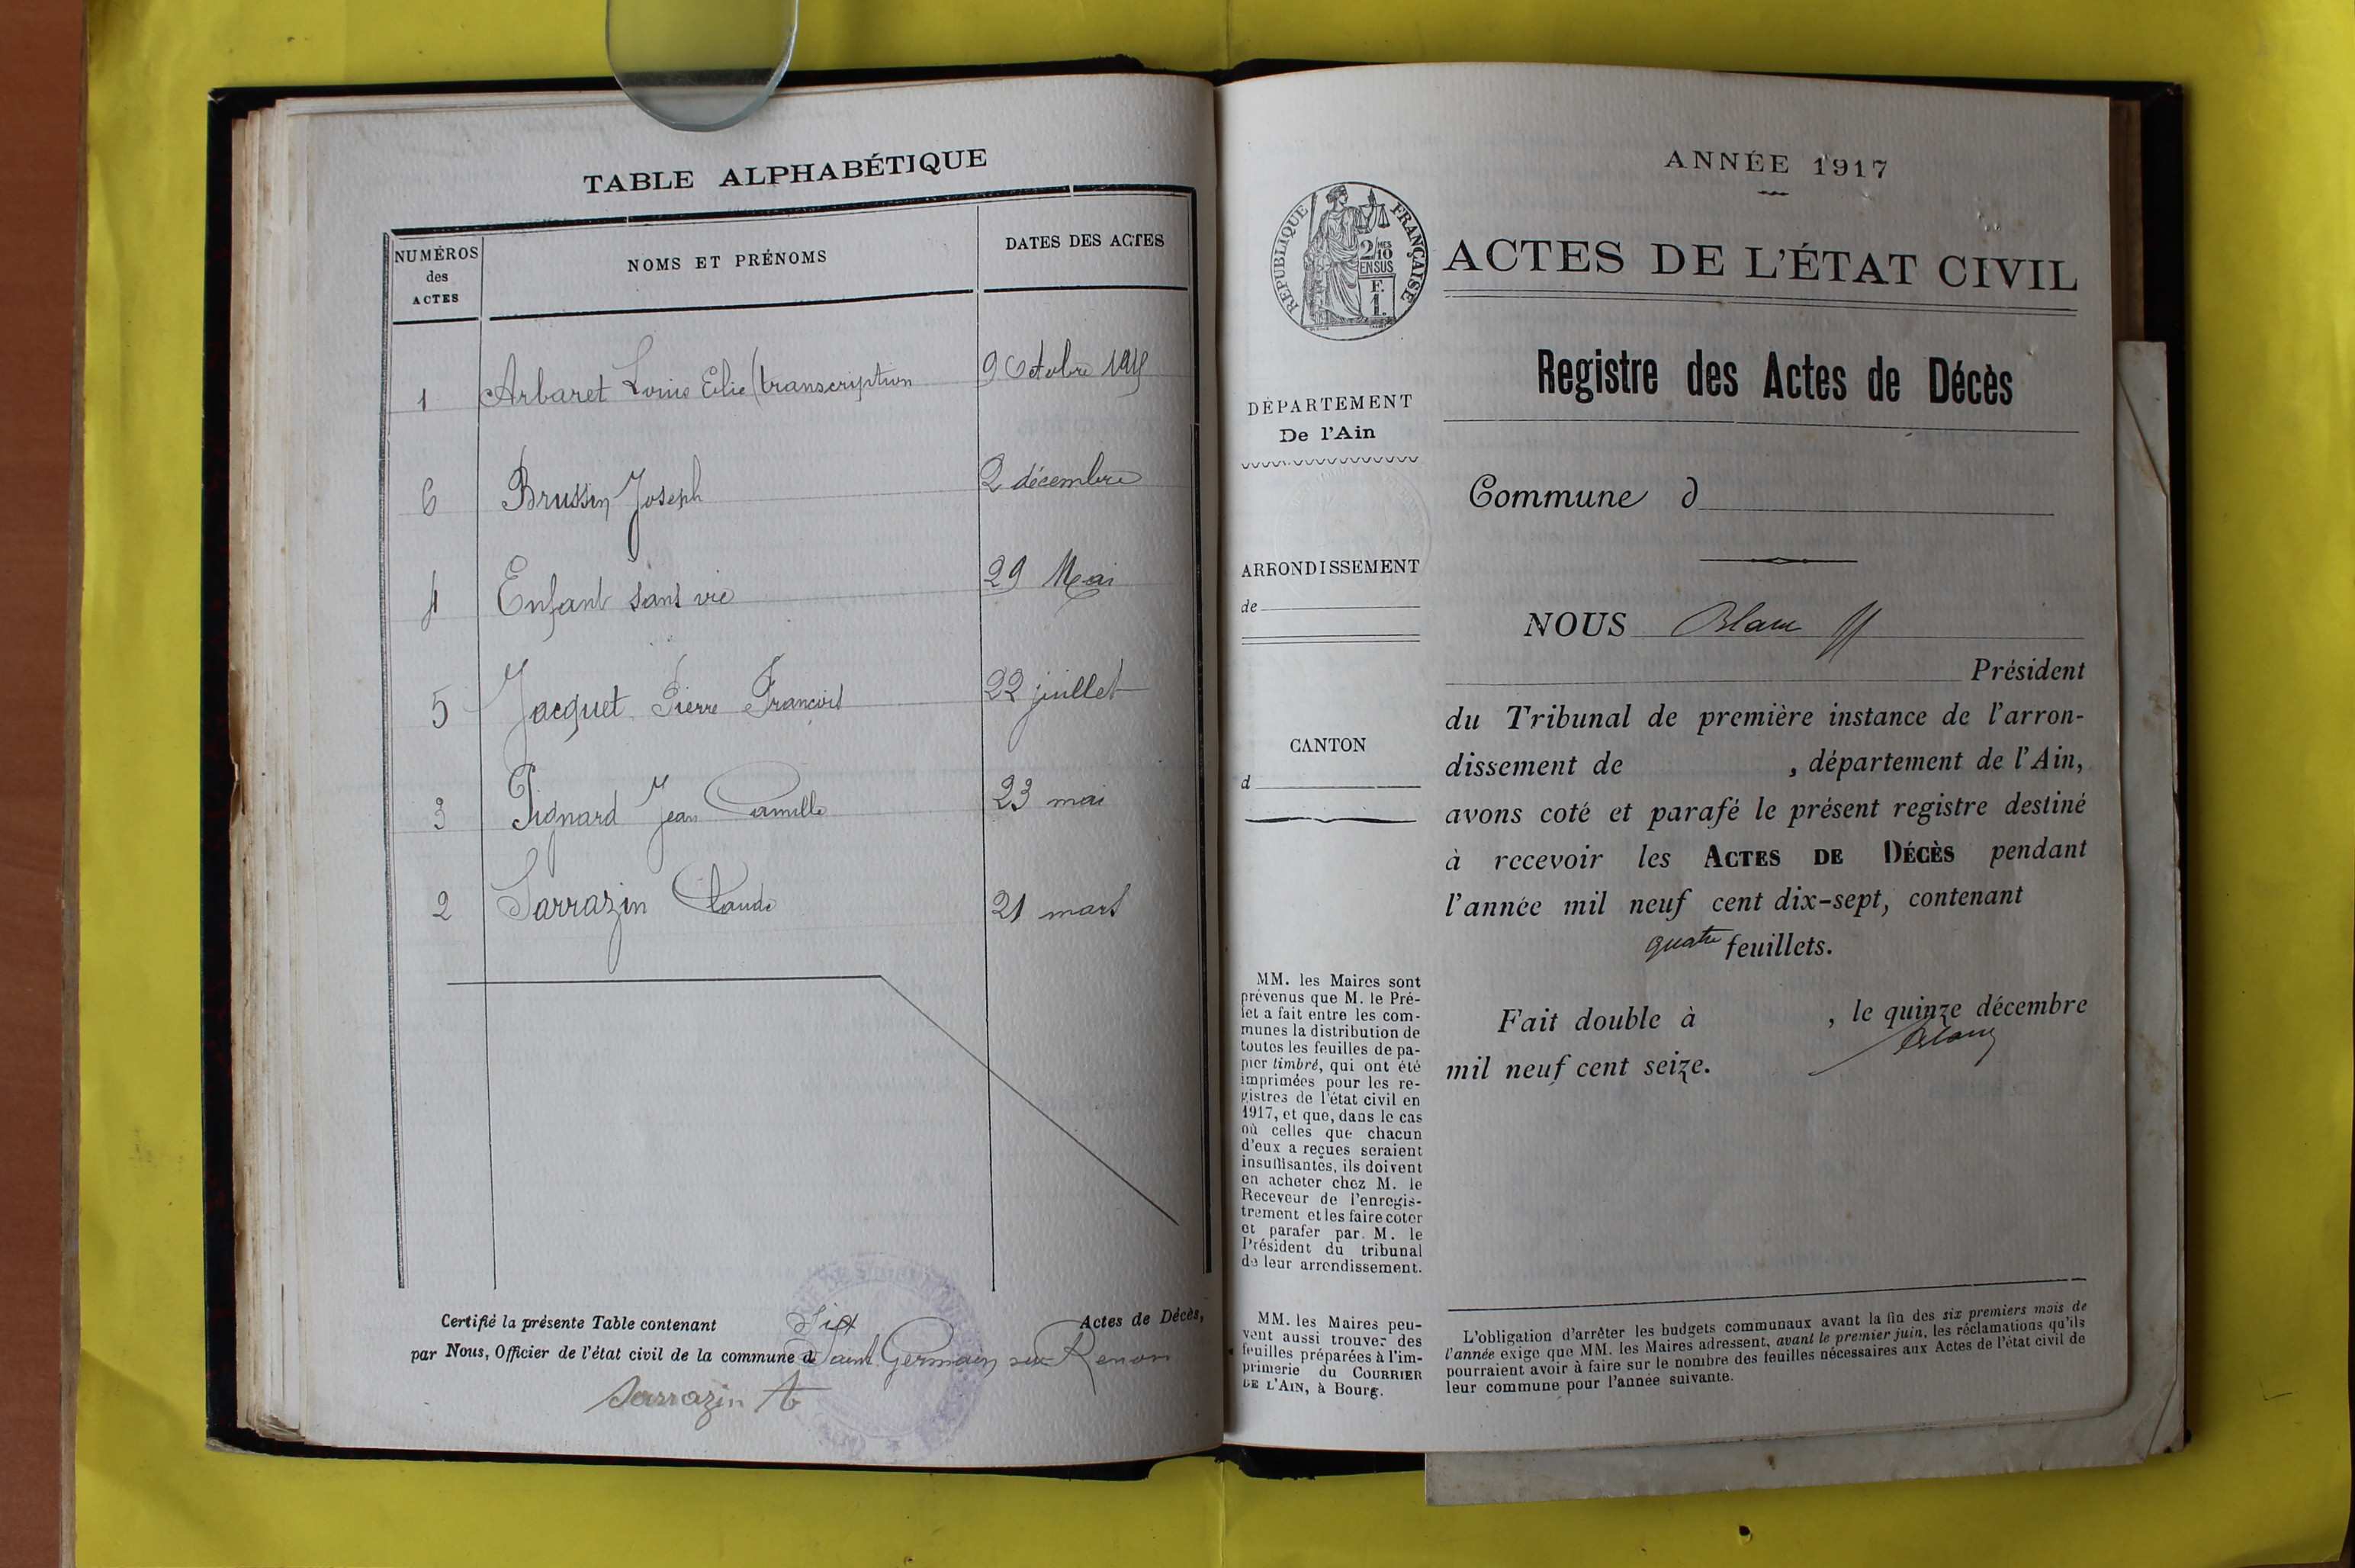 TABLE ALPHABÉTIQUE
NUMÉROS des ACTES NOMS ET PRÉNOMS DATES DES ACTES
1 Arbaret Louis Elie (transcription 9 Octobre
6 Brussin Joseph 2 décembre
4 Enfant sans vie 29 Mai
5 Jacquet Pierre François 22 juillet
3 Pignard Jean Camille 23 mai
2 Sarrazin Claude 21 mars
Certifié la présente Table contenant Six Actes de Décès,
par Nous, Officier de l'état civil de la commune d Saint Germain sur Renon
Sarrazin
ANNÉE 1917
RÉPUBLIQUE FRANÇAISE
2/10 MES
EN SUS
F.
1.
ACTES DE L'ÉTAT CIVIL
Registre des Actes de Décès
DÉPARTEMENT
De l'Ain
ARRONDISSEMENT
de
CANTON
d
MM. les Maires sont
prévenus que M. le Pré-
fet a fait entre les com-
munes la distribution de
toutes les feuilles de pa-
pier timbré, qui ont été
imprimées pour les re-
gistres de l'état civil en
1917, et que, dans le cas
où celles que chacun
d'eux a reçues seraient
insuffisantes, ils doivent
en acheter chez M. le
Receveur de l'enregis-
trement et les faire coter
et parafer par M. le
Président du tribunal
de leur arrondissement.
MM. les Maires peu-
vent aussi trouver des
feuilles préparées à l'im-
primerie du COURRIER
DE L'AIN, à Bourg.
Commune d
NOUS Blanc
Président
du Tribunal de première instance de l'arron-
dissement de , département de l'Ain,
avons coté et parafé le présent registre destiné
à recevoir les ACTES DE DÉCÈS pendant
l'année mil neuf cent dix-sept, contenant
quatre feuillets.
Fait double à , le quinze décembre
mil neuf cent seize.
Blanc
L'obligation d'arrêter les budgets communaux avant la fin des six premiers mois de
l'année exige que MM. les Maires adressent, avant le premier juin, les réclamations qu'ils
pourraient avoir à faire sur le nombre des feuilles nécessaires aux Actes de l'état civil de
leur commune pour l'année suivante.